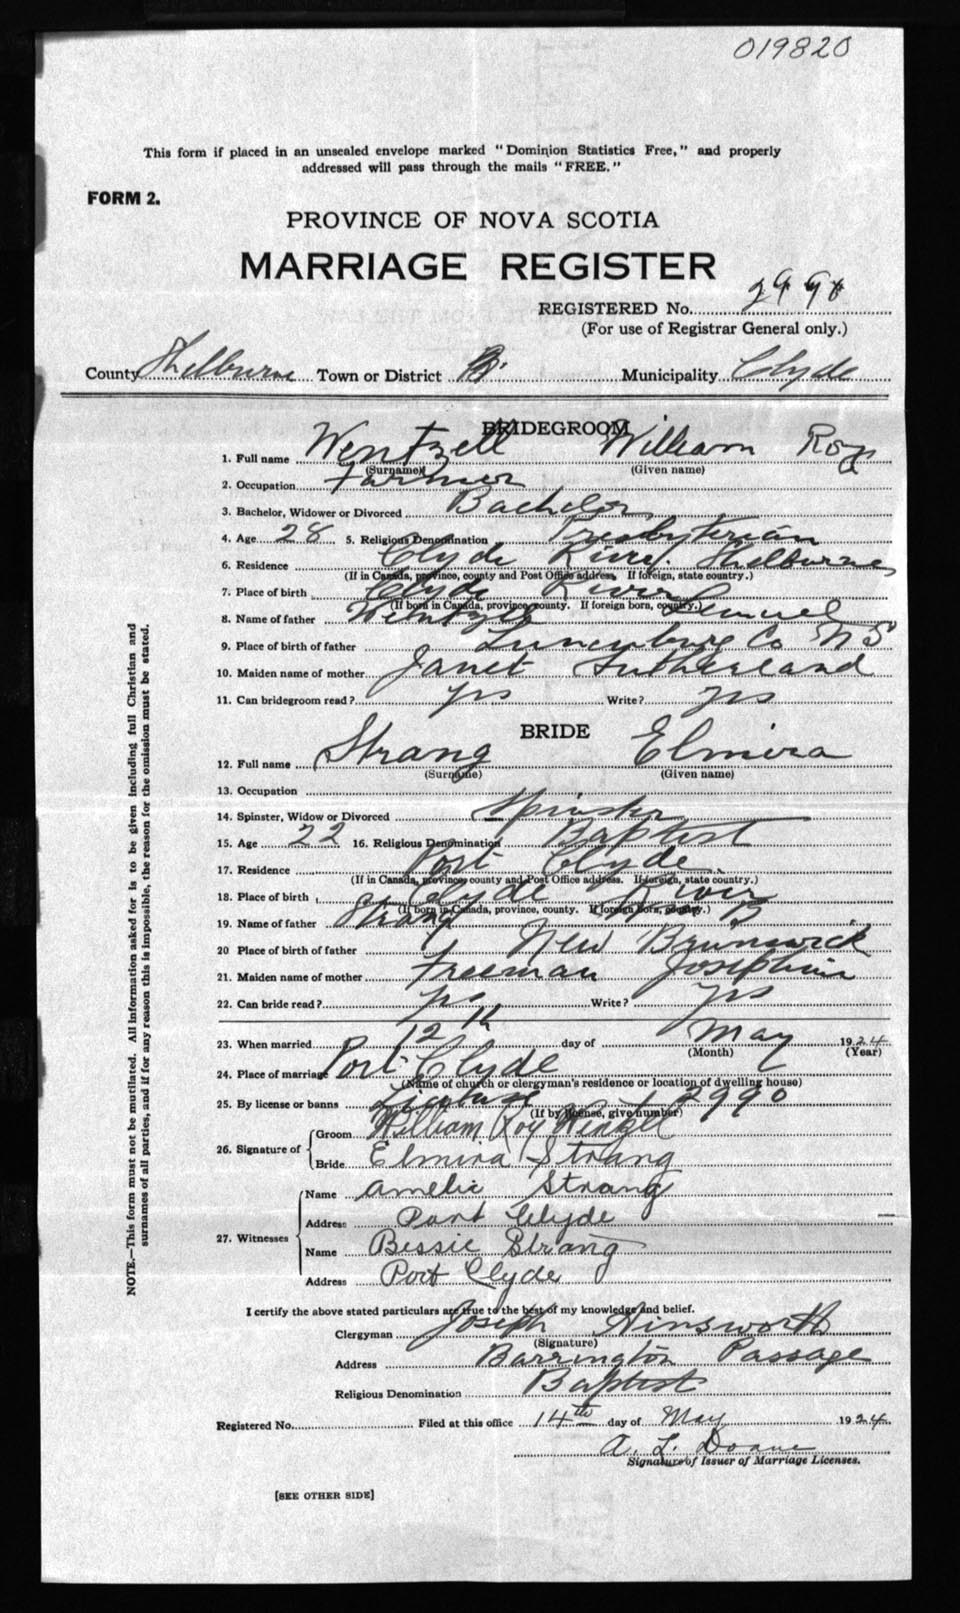 019820
This form if placed in an unsealed envelope marked "Dominion Statistics Free," and properly
addressed will pass through the mails "FREE."
FORM 2.
PROVINCE OF NOVA SCOTIA
MARRIAGE REGISTER
REGISTERED No. 2990
(For use of Registrar General only.)
County Shelburne Town or District Municipality Clyde
BRIDEGROOM
1. Full name Wentzell William Roy
(Surname) (Given name)
2. Occupation Farmer
3. Bachelor, Widower or Divorced Bachelor
4. Age 28 5. Religious Denomination Presbyterian
6. Residence Clyde River. Shelburne
(If in Canada, province, county and Post Office address. If foreign, state country.)
7. Place of birth Clyde River
(If born in Canada, province, county. If foreign born, country.)
8. Name of father Wentzell Lemuel
9. Place of birth of father Lunenburg Co N S
10. Maiden name of mother Janet Sutherland
11. Can bridegroom read? yes Write? yes
BRIDE
12. Full name Strang Elmira
(Surname) (Given name)
13. Occupation
14. Spinster, Widow or Divorced Spinster
15. Age 22 16. Religious Denomination Baptist
17. Residence Port Clyde
(If in Canada, province, county and Post Office address. If foreign, state country.)
18. Place of birth Clyde River
(If born in Canada, province, county. If foreign born, country.)
19. Name of father Strang
20 Place of birth of father New Brunswick
21. Maiden name of mother Freeman Josephine
22. Can bride read? yes Write? yes
23. When married 12th day of May 1924
(Month) (Year)
24. Place of marriage Port Clyde
(Name of church or clergyman's residence or location of dwelling house)
25. By license or banns License 2990
(If by license, give number)
26. Signature of Groom William Roy Wentzel
Bride Elmira Strang
27. Witnesses Name Amelie Strang
Address Port Clyde
Name Bessie Strang
Address Port Clyde
I certify the above stated particulars are true to the best of my knowledge and belief.
Clergyman Joseph Ainsworth
(Signature)
Address Barrington Passage
Religious Denomination Baptist
Registered No. Filed at this office 14th day of May 1924
A. L. Doane
Signature of Issuer of Marriage Licenses.
[SEE OTHER SIDE]
NOTE.—This form must not be mutilated. All information asked for is to be given including full Christian and
surnames of all parties, and if for any reason this is impossible, the reason for the omission must be stated.